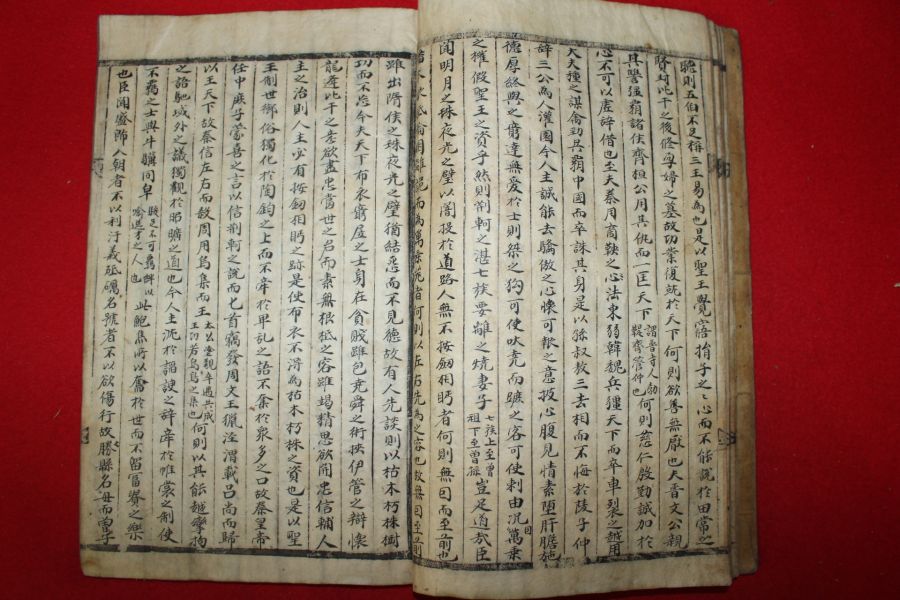 聽則五伯不足稱三王易為也是以聖王覺寤捐子之之心而不能說於田常之
賢封比干之後修孕婦之墓故功業復就於天下何則欲善無厭也夫晋文公親
其讐强覇諸侯齊桓公用其仇而一匡天下謂晋寺人勃鞮齊管仲也何則慈仁慇勤誠加於
心不可以虛辞借也至夫秦用商鞅之法東弱韓魏兵疆天下而卒車裂之越用
大夫種之謀禽勁吳覇中國而卒誅其身是以孫叔敖三去相而不悔於陵子仲
辞三公為人灌園今人主誠能去驕傲之心懷可報之意披心腹見情素堕肝膽施
德厚終與之窮達無愛於士則桀之狗可使吠堯而蹠之客可使刺由况因萬乗
之權假聖王之資乎然則荆軻之湛七族要離之燒妻子七族上至曾祖下至曾孫豈足道哉臣
聞明月之珠夜光之璧以闇投於道路人無不按劒相眄者何則無因而至前也
木根柢輪囷離詭而為萬乘器者何則以左右先為之容也故無因至前
雖出隋侯之珠夜光之璧猶結怨而不見德故有人先談則以枯木朽株樹
功而不忘今夫天下布衣窮居之士身在貧賤雖包堯舜之術挾伊管之辯懷
龍逄比干之意欲盡忠當世之君而素無根柢之容雖竭精思欲開忠信輔人
主之治則人主必有按劒相眄之跡是使布衣不得為枯木朽株之資也是以聖
王制世御俗獨化於陶鈞之上而不牽於卑乱之語不奪於衆多之口故秦皇帝
任中庶子蒙善之言以信荆軻之說而匕首竊發周文王獵涇渭載呂尚而歸
以王天下故秦信左右而周用烏集而王太公望覯卒遇共成王功若烏鳥之集也何則以其能越攣拘
之語馳域外之議獨觀於昭曠之道也今人主沉於謟諛之辞牽於帷裳之制使
不覊之士與牛驥同皁駿足不可羈絆以喻逸才之人也此鮑焦所以奮於世而不留冨貴之樂
也臣聞盛飾入朝者不以利汙義砥礪名號者不以欲傷行故勝縣名母而曽子